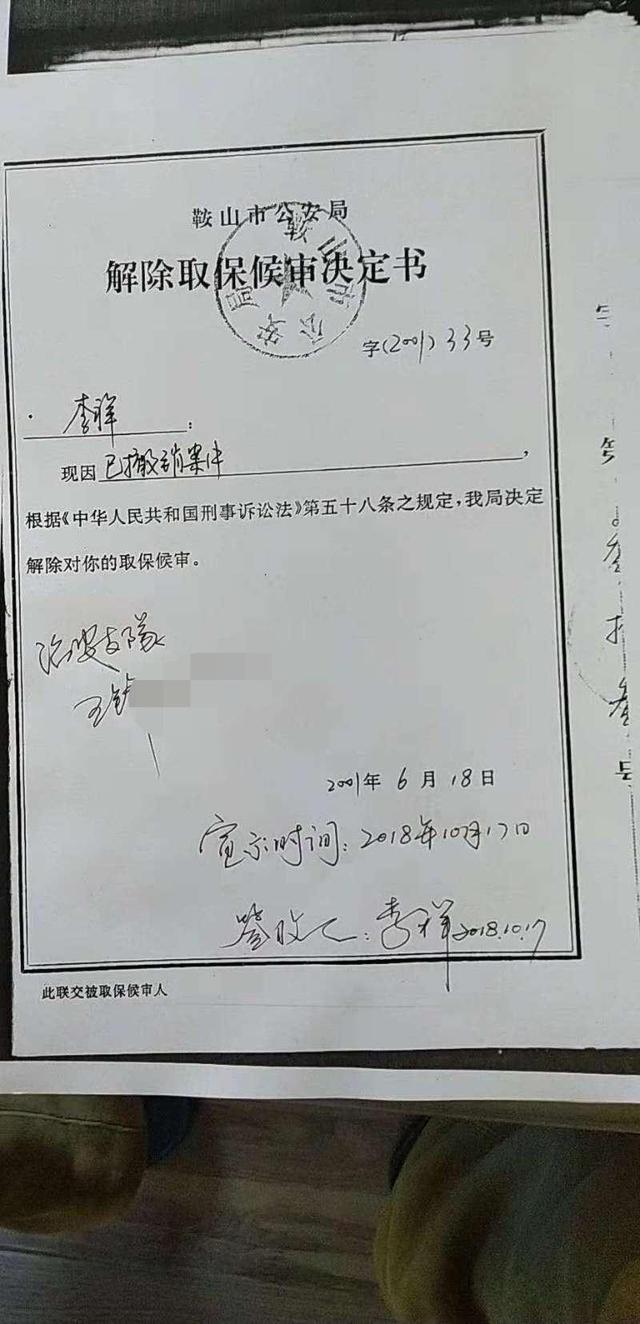 鞍山市公安局
解除取保候审决定书
鞍山市公安局
字(2001)33号
李祥：
现因已撤销案件，
根据《中华人民共和国刑事诉讼法》第五十八条之规定，我局决定
解除对你的取保候审。
治安支隊
王
2001年6月18日
宣示时间：2018年10月17日
签收人：李祥2018.10.17
此联交被取保候审人